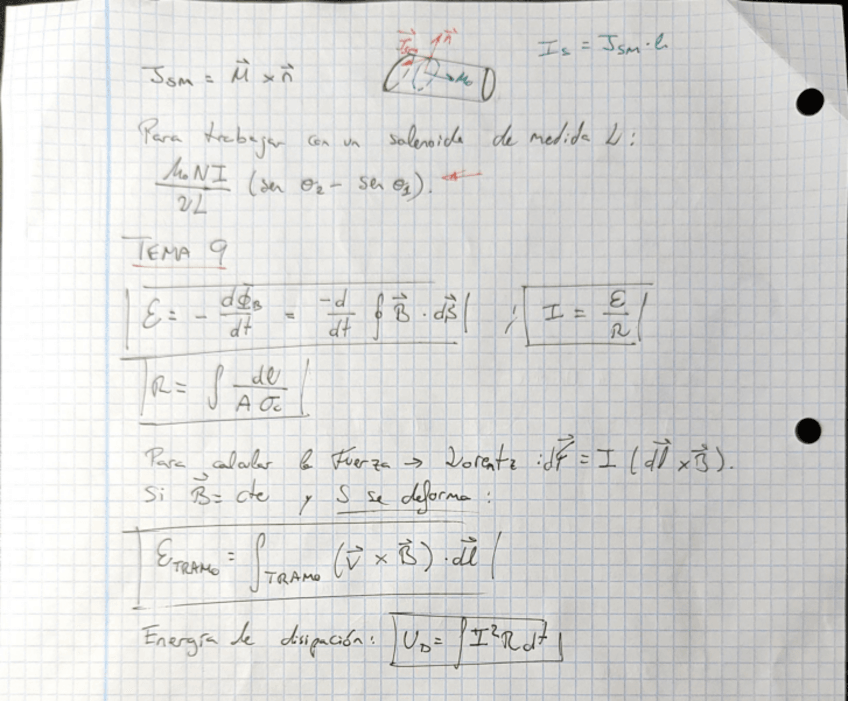 J_SM = M⃗ × n⃗   J⃗_SM   n⃗   M⃗   I_S = J_SM · L
Para trabajar con un solenoide de medida L:
μ₀NI / 2L (sen θ₂ - sen θ₁).
TEMA 9
ε = - dΦ_B / dt = -d / dt ∮ B⃗ · dS⃗ ; I = ε / R
R = ∫ dl / A σ_c
Para calcular la Fuerza → Lorentz : dF⃗ = I (dl⃗ × B⃗).
Si B⃗ = cte y S se deforma :
ε_TRAMO = ∫_TRAMO (v⃗ × B⃗) · dl⃗
Energía de disipación : U_D = ∫ I² R dt